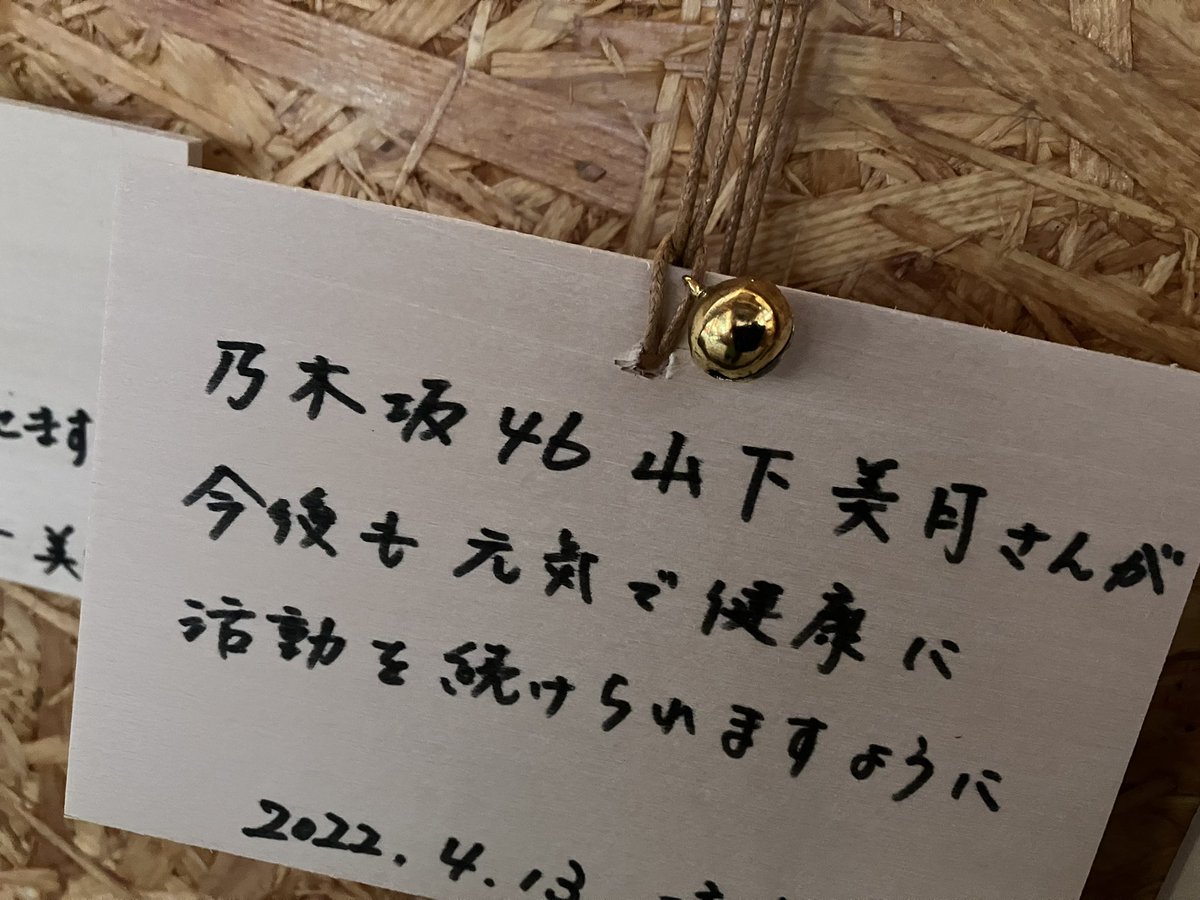 乃木坂46 山下美月さんが
今後も元気で健康に
活動を続けられますように
2022.4.13
きます
美